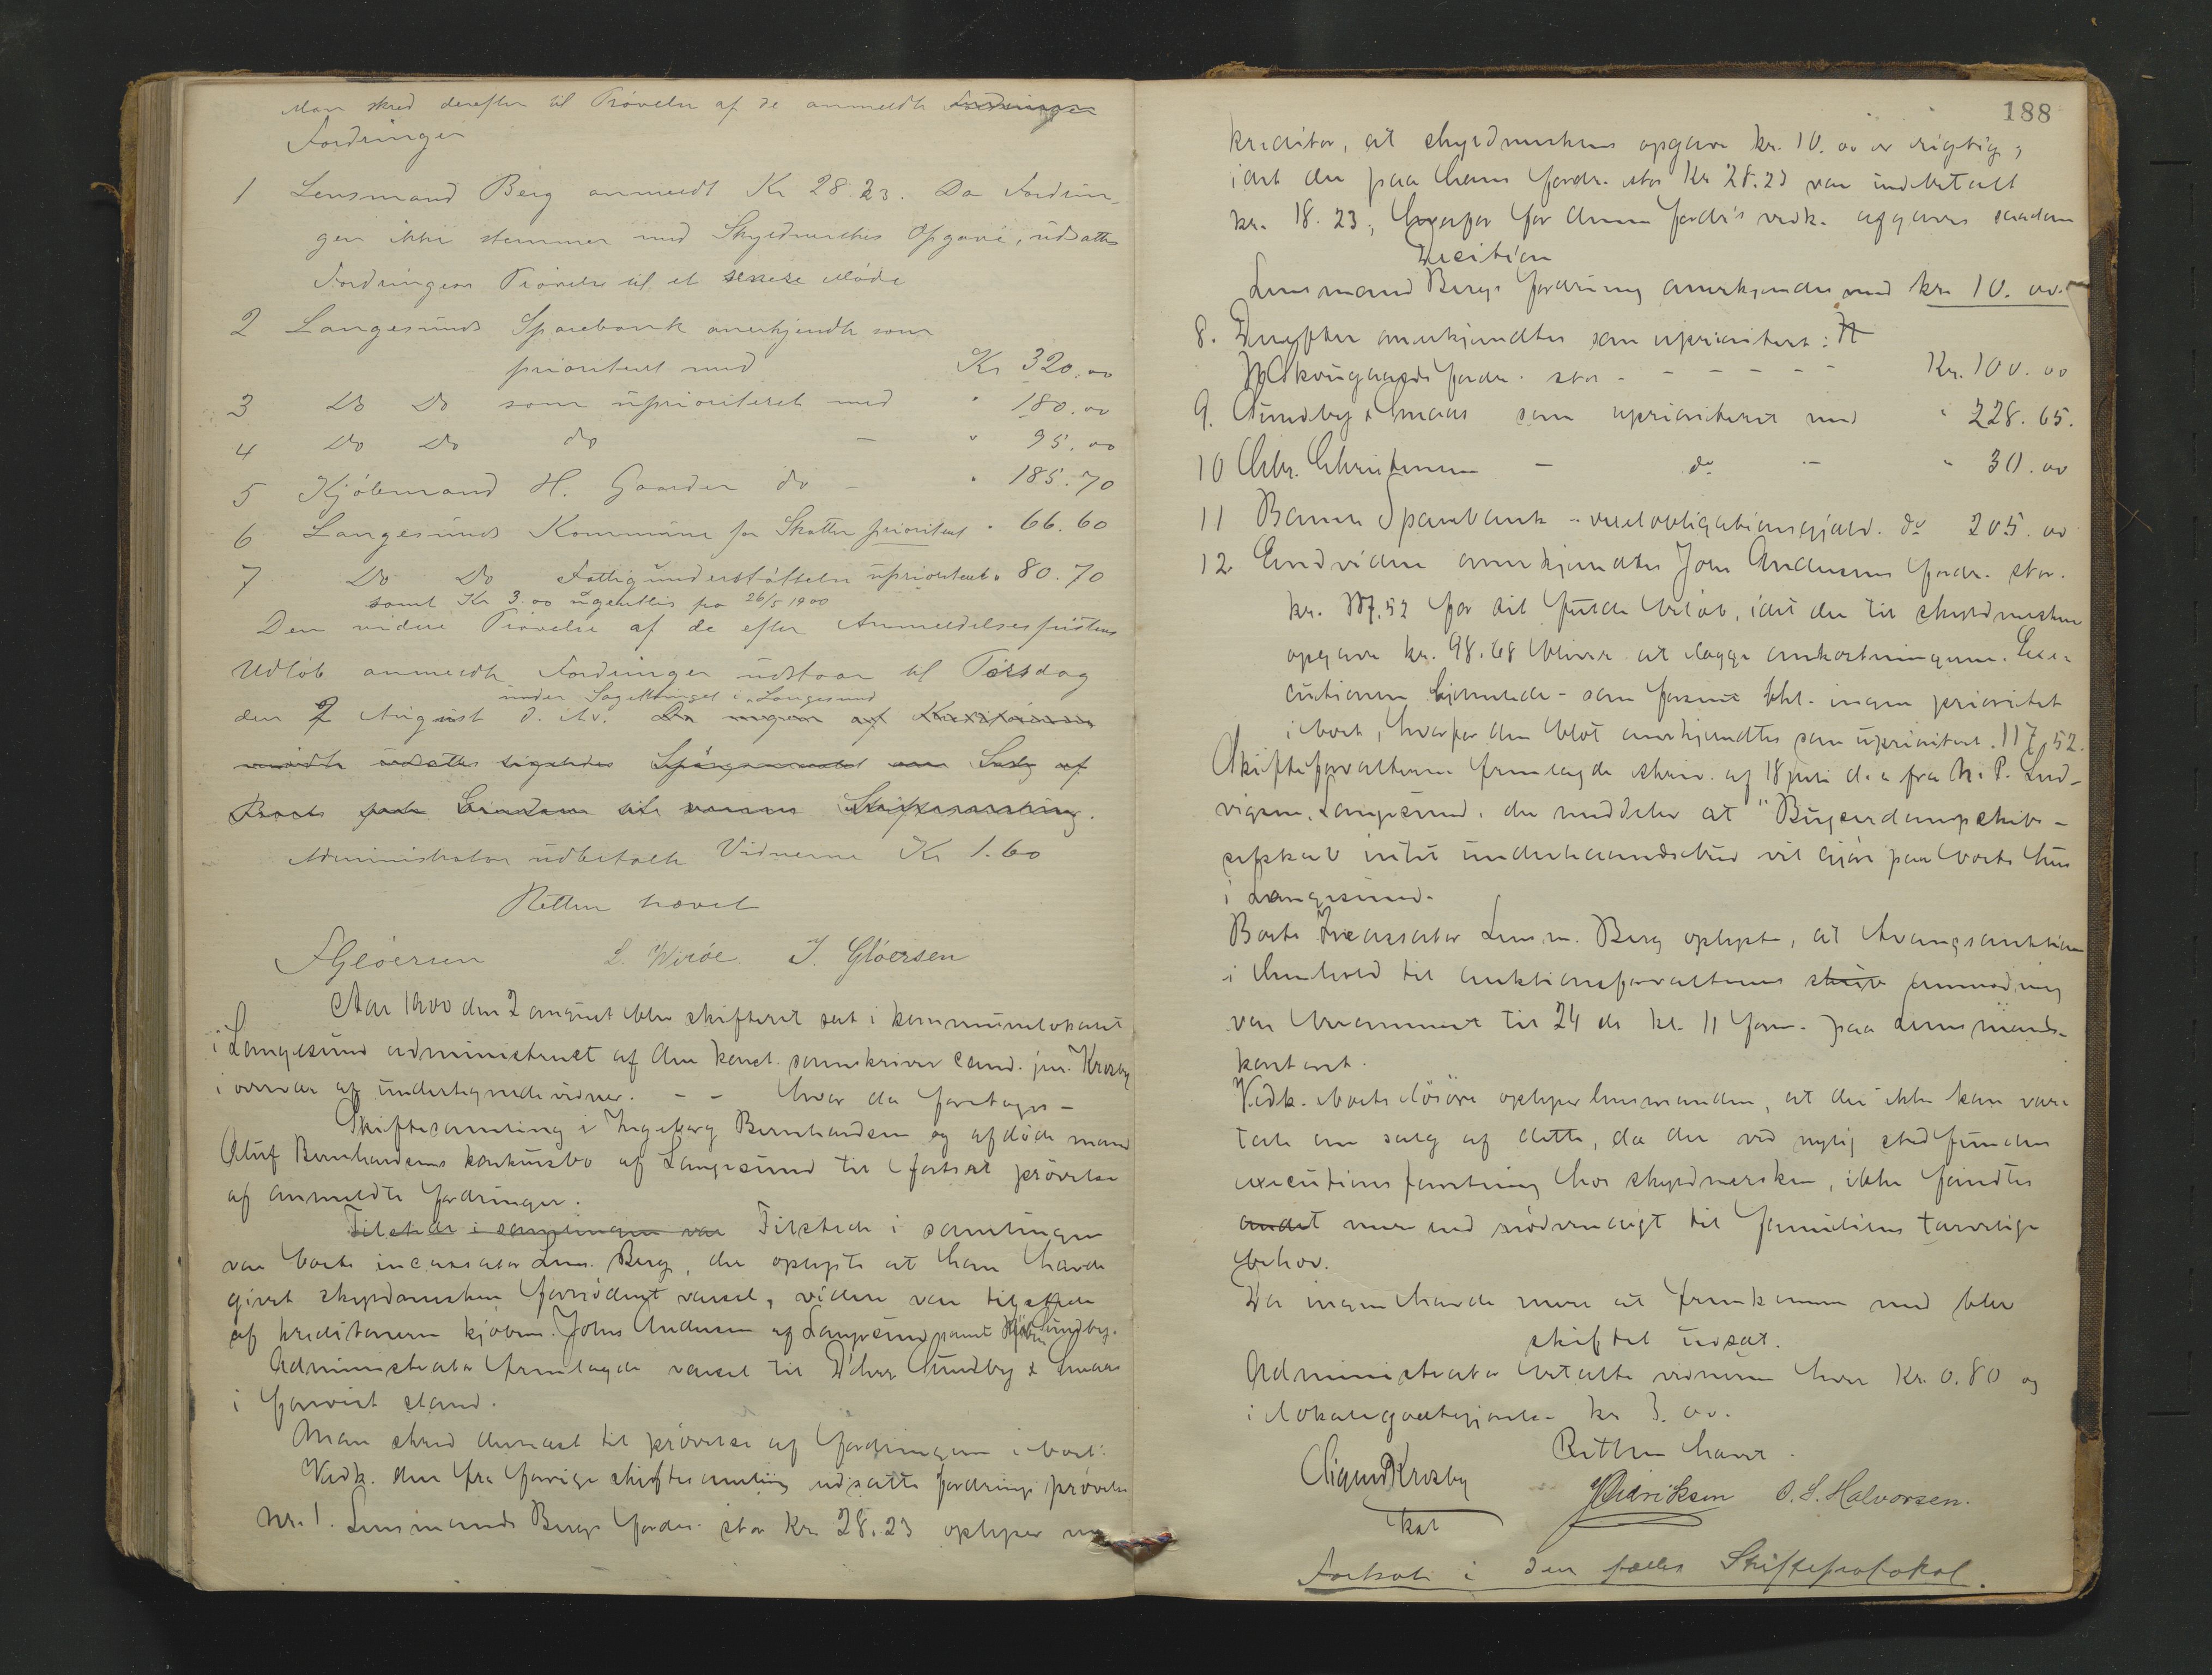 Man skred derefter til Prøvelse af de anmeldte Fordringer
Fordringer
1 Lensmand Berg anmeldt Kr 28.23. Da Fordrin-
gen ikke stemmer med Skyldnerskes Opgave, udsattes
Fordringens Prøvelse til et senere Møde
2 Langesunds Sparebank anerkjendte som
prioritert med Kr 320.00
3 Do Do som uprioriteret med " 180.00
4 Do Do do - " 95.00
5 Kjøbmand H. Gaarder do - " 185.70
6 Langesunds Kommune for Skatter prioritert " 66.60
7 Do Do Fattigunderstøttelse uprioritert " 80.70
samt Kr 3.00 ugentlig fra 26/5 1900
Den videre Prøvelse af de efter Anmeldelsesfristens
Udløb anmeldte Fordringer udstaar til Torsdag
under Sagettinget i Langesund
den 2 August d. Av. Da ingen af Kreditorerne
mødte udsattes ligeledes Spørgsmaalet om Salg af
Boets faste Eiendom til samme Skiftesamling.
Administrator udbetalte Vidnerne Kr 1.60
Retten hævet
FGløersen L. Wirøe. J. Gløersen
Aar 1900 den 2 august blev skifteret sat i kommunelokalet
i Langesund administreret af den konst. sorenskriver cand. jur. Krosby
i overvær af undertegnede vidner. - - hvor da foretoges -
Skiftesamling i Ingeborg Bernhardsen og afdøde mand
Oluf Bernhardsens konkursbo af Langesund til fortsat prøvelse
af anmeldte fordringer.
Tilstede i samlingen var Tilstede i samlingen
var boets incassator Lensm. Berg, der oplyste at han havde
givet skyldnersken fornødent varsel, videre var tilstede
af kreditorerne kjøbm. Johs Andersen af Langesund samt Kjøbm Sundby.
Administrator fremlagde varsel til D'hrr Sundby &
i forevist stand.
Man skred dernæst til prøvelse af fordringerne i boet:
Vedk. den fra forrige skiftesamling udsatte fordrings prøvelse
nr. 1. Lensmands Bergs fordr. stor Kr. 28.23 oplyser nu
188
kreditor, at skyldnerskens opgave kr. 10.00 er rigtig,
idet der paa hans fordr. stor Kr 28.23 var indbetalt
kr. 18.23, hvorfor for denne fordr's vedk. afgaves saadan
Decition
Lensmand Bergs fordring anerkjendes med kr. 10.00.
8. Derefter anerkjendtes som uprioritert:
fordr. stor - - - - - Kr. 100.00
9. Sundby & som uprioriteret med " 228.65.
10 Chr. Christensen - do - " 30.00
11 Bamle Sparebank - vexelobligationsgjæld. do 205.00
12 Endvidere anerkjendtes Johs Andersens fordr. stor.
kr. 117,52 for sit fulde beløb, idet der til skyldnerskens
opgave kr. 98.68 bliver at lægge omkostningerne. Exe-
cutionen hjemlede - som foreeet ingen prioritet
i boet, hvorfor den blot anerkjendtes som uprioritert. 117,52.
Skifteforvalteren fremlagde skriv. af 18 juni d.a fra N. P. Lud-
vigsen, Langesund, der meddeler at "Bugserdampskibs-
selskab intet underhaandsbud vil gjøre paa boets hus
i Langesund.
Boets Incassator Lensm. Berg oplyste, at tvangsauktion
i henhold til auktionsforvalterens skriv anmodning
var berammet til 24 ds kl. 11 form. paa lensmands-
kontoret.
Vedk. boets løsøre oplyser lensmanden, at der ikke kan være
tale om salg af dette, da der ved nylig stedfunden
executionsforretning hos skyldnersken, ikke fandtes
andet mere end nødvendigt til familiens tarvelige
behov.
Da ingen havde mere at fremkomme med blev
skiftet udsat.
Administrator betalte vidnerne hver Kr. 0.80 og
i lokalegodtgjørelse kr 3.00.
Retten hævet.
Sigurd Krosby
kst
Didriksen O. S. Halvorsen.
Fortsat i den fælles Skifteprotokol.